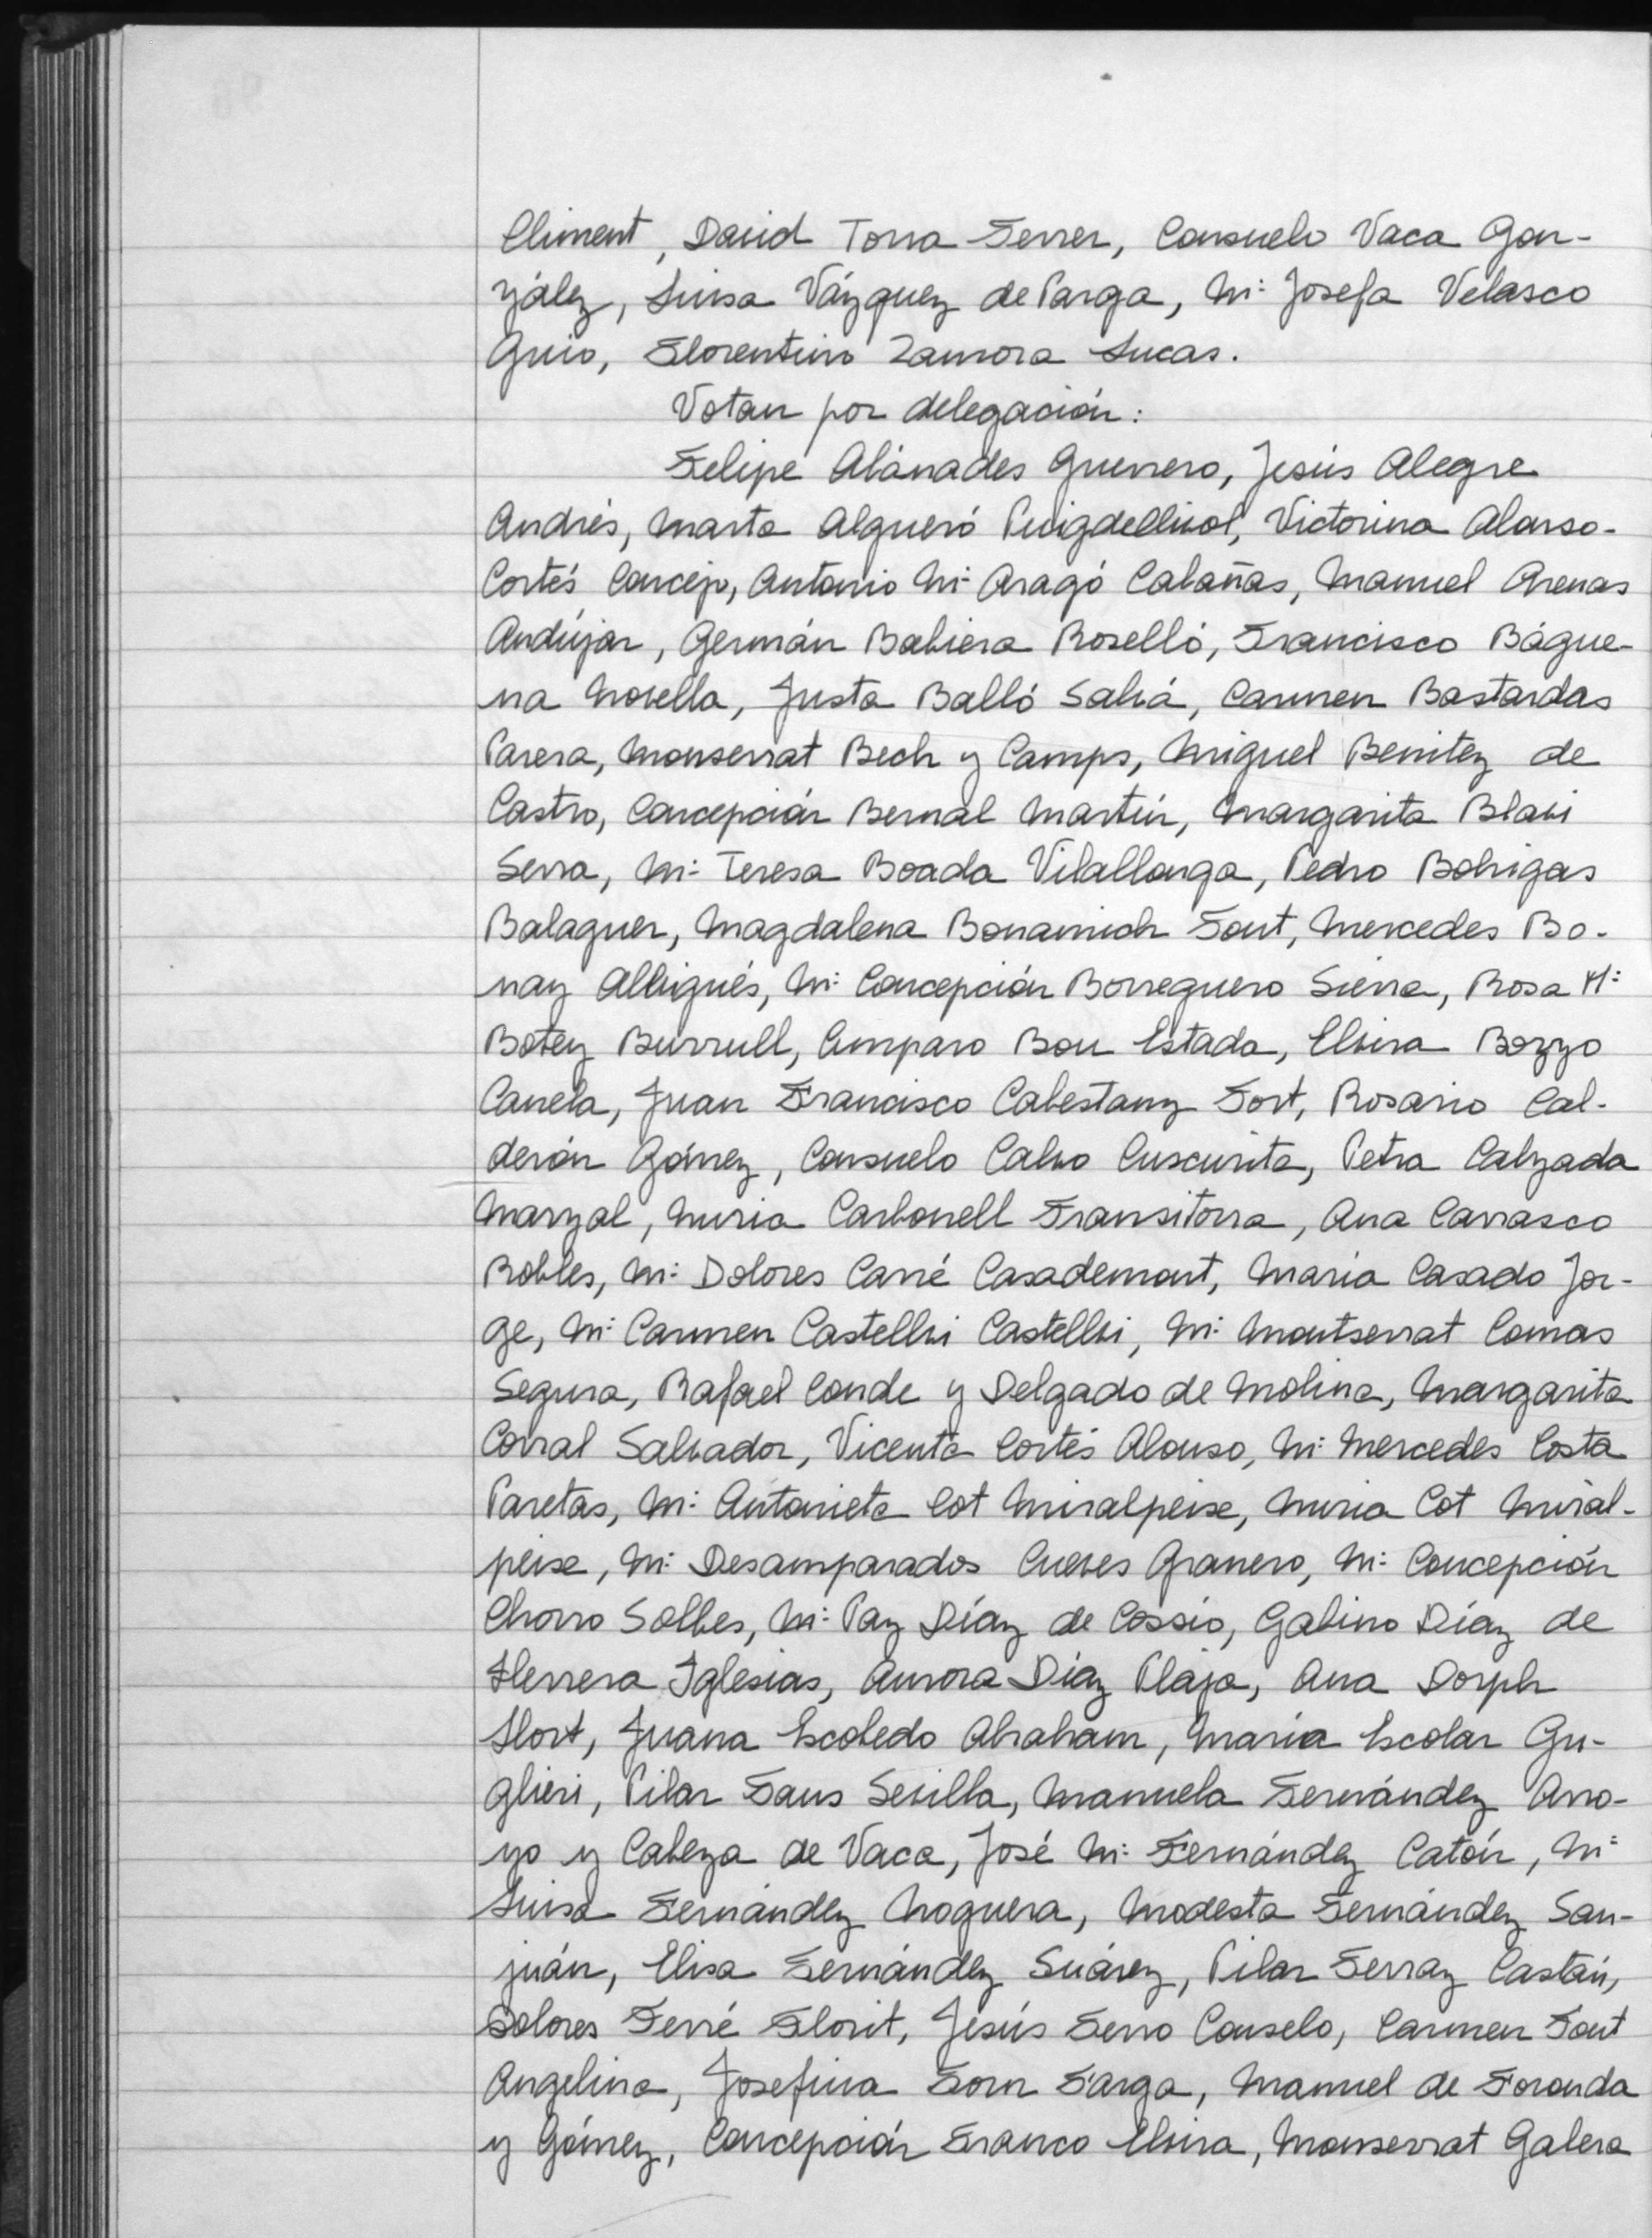 Climent, David Torra Ferrer, Consuelo Vaca Gon-
zález, Luisa Vázquez de Parga, Mª Josefa Velasco
Guio, Florentino Zamora Lucas.
Votan por delegación:
Felipe Abánades Guerrero, Jesús Alegre
Andrés, Marta Algueró Puigdellívol, Victorina Alonso-
Cortés Concejo, Antonio Mª Aragó Cabañas, Manuel Arenas
Andújar, Germán Babiera Roselló, Francisco Bágue-
na Novella, Justa Balló Salvá, Carmen Bastardas
Parera, Monserrat Bech y Camps, Miguel Benitez de
Castro, Concepción Bernal Martín, Margarita Blavi
Serra, Mª Teresa Boada Vilallonga, Pedro Bohigas
Balaguer, Magdalena Bonamich Font, Mercedes Bo-
nay Albigués, Mª Concepción Borreguero Sierra, Rosa Mª
Botey Burrull, Amparo Bou Estada, Elvira Bozzo
Canela, Juan Francisco Cabestany Fort, Rosario Cal-
derón Gómez, Consuelo Calvo Cuscurita, Petra Calzada
Marzal, Nuria Carbonell Fransitorra, Ana Carrasco
Robles, Mª Dolores Carré Casademont, María Casado Jor-
ge, Mª Carmen Castellví Castellví, Mª Montserrat Comas
Segura, Rafael Conde y Delgado de Molina, Margarita
Corral Salvador, Vicenta Cortés Alonso, Mª Mercedes Costa
Paretas, Mª Antonieta Cot Miralpeixe, Nuria Cot Miral-
peixe, Mª Desamparados Cueves Granero, Mª Concepción
Chorro Solbes, Mª Paz Díaz de Cossío, Gabino Díaz de
Herrera Iglesias, Aurora Díaz Plaja, Ana Dorph
Hort, Juana Escobedo Abraham, María Escolar Gu-
glieri, Pilar Faus Sevilla, Manuela Fernández Arro-
yo y Cabeza de Vaca, José Mª Fernández Catón, Mª
Luisa Fernández Noguera, Modesta Fernández San-
juán, Elisa Fernández Suárez, Pilar Ferraz Castán,
Dolores Ferré Florit, Jesús Ferro Couselo, Carmen Font
Angelina, Josefina Forn Farga, Manuel de Foronda
y Gómez, Concepción Franco Elvira, Monserrat Galera